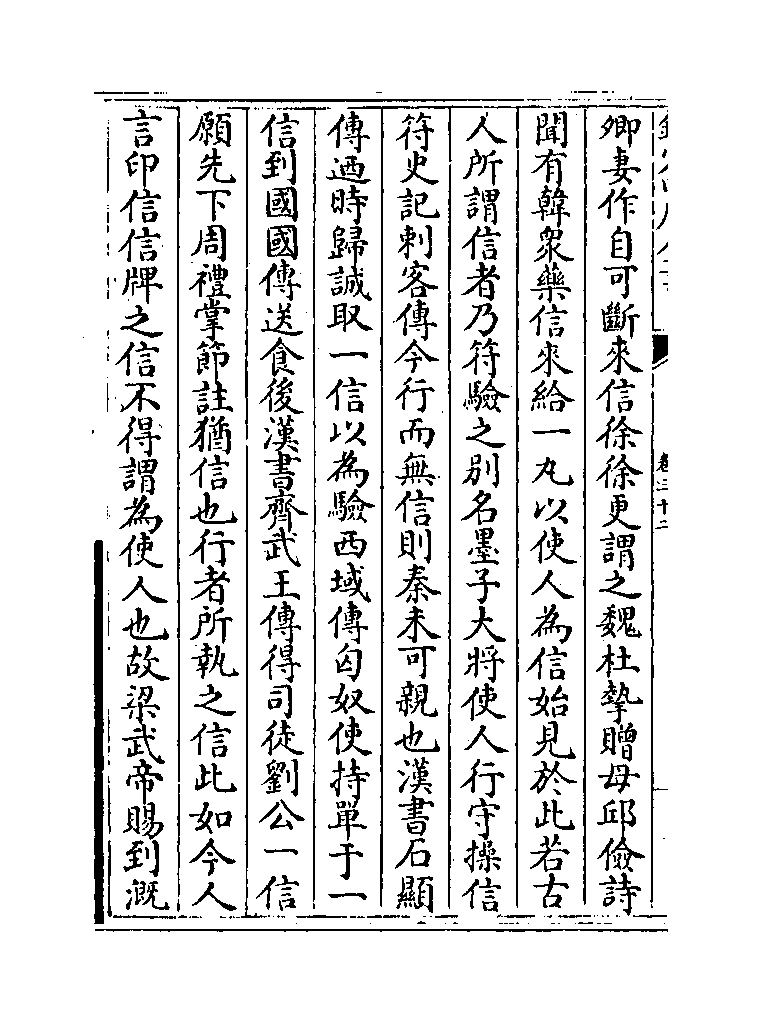 卿妻作自可斷來信徐徐更謂之魏杜摯贈毋邱儉詩
聞有韓衆藥信來給一丸以使人為信始見於此若古
人所謂信者乃符驗之别名墨子大將使人行守操信
符史記刺客傳今行而無信則秦未可親也漢書石顯
傳迺時歸誠取一信以為驗西域傳匈奴使持單于一
信到國國傳送食後漢書齊武王傳得司徒劉公一信
願先下周禮掌節註猶信也行者所執之信此如今人
言印信信牌之信不得謂為使人也故梁武帝賜到溉
卷三十二